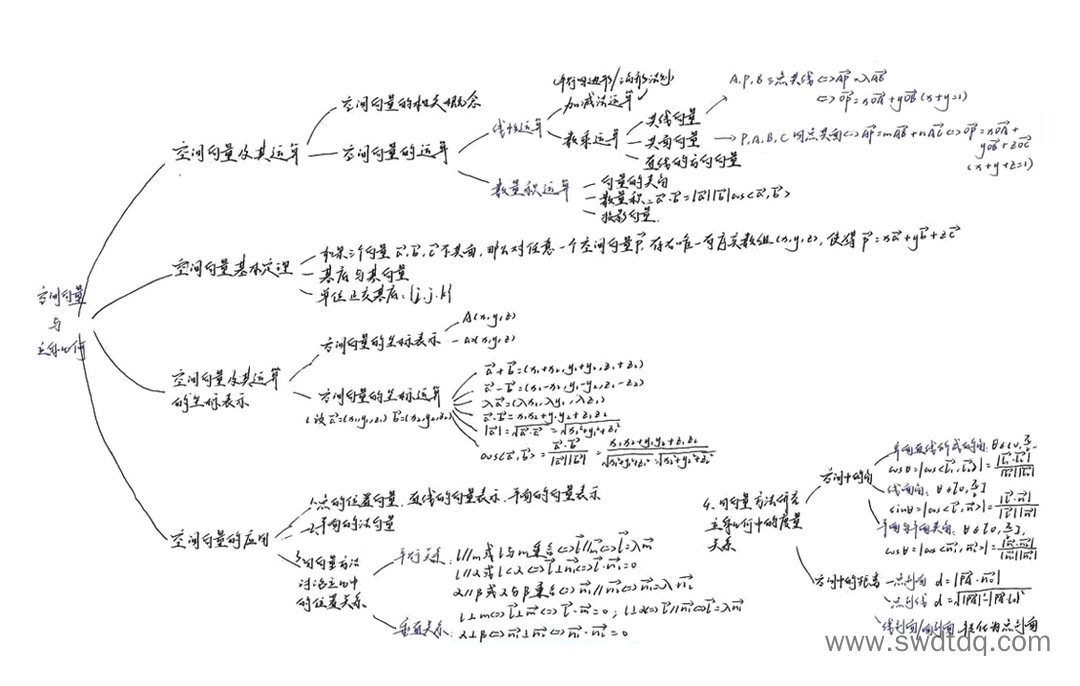 空间向量
与
立体几何
空间向量及其运算
空间向量的相关概念
空间向量的运算
线性运算
(平行四边形/三角形法则)
加减法运算
数乘运算
共线向量
A,P,B三点共线⇔AP=λAB
⇔OP=xOA+yOB (x+y=1)
共面向量
P,A,B,C四点共面⇔AP=mAB+nAC⇔OP=xOA+
yOB+zOC
(x+y+z=1)
直线的方向向量
数量积运算
向量的夹角
数量积:a·b=|a||b|cos<a,b>
投影向量
空间向量基本定理
如果三个向量a,b,c不共面,那么对任意一个空间向量p,存在唯一有序实数组(x,y,z),使得p=xa+yb+zc
基底与基向量
单位正交基底:{i,j,k}
空间向量及其运算
的坐标表示
空间向量的坐标表示
A(x,y,z)
a(x,y,z)
空间向量的坐标运算
(设a=(x₁,y₁,z₁) b=(x₂,y₂,z₂)
a+b=(x₁+x₂,y₁+y₂,z₁+z₂)
a-b=(x₁-x₂,y₁-y₂,z₁-z₂)
λa=(λx₁,λy₁,λz₁)
a·b=x₁x₂+y₁y₂+z₁z₂
|a|=√a·a=√x₁²+y₁²+z₁²
cos<a,b>=a·b/|a||b|=x₁x₂+y₁y₂+z₁z₂/√x₁²+y₁²+z₁²·√x₂²+y₂²+z₂²
空间向量的应用
1.点的位置向量、直线的向量表示、平面的向量表示
2.平面的法向量
3.用向量方法
讨论立几中
的位置关系
平行关系:
l//m或l与m重合⇔l//m⇔l=λm
l//α或l⊂α⇔l⊥n₁⇔l·n₁=0
α//β或α与β重合⇔n₁//n₂⇔n₁=λn₂
垂直关系:
l⊥m⇔l⊥m⇔l·m=0; l⊥α⇔l//n₁⇔l=λn₁
α⊥β⇔n₁⊥n₂⇔n₁·n₂=0
4.用向量方法研究
立体几何中的度量
关系
空间中的角
异面直线所成的角:
cosθ=|cos<l₁,l₂>|=|l₁·l₂|/|l₁||l₂|
线面角:θ∈[0,π/2]
sinθ=|cos<l,n>|=|l·n|/|l||n|
平面与平面夹角:θ∈[0,π/2]
cosθ=|cos<n₁,n₂>|=|n₁·n₂|/|n₁||n₂|
空间中的距离
点到面
点到线
线到面/面到面 转化为点到面
www.swdtdq.com